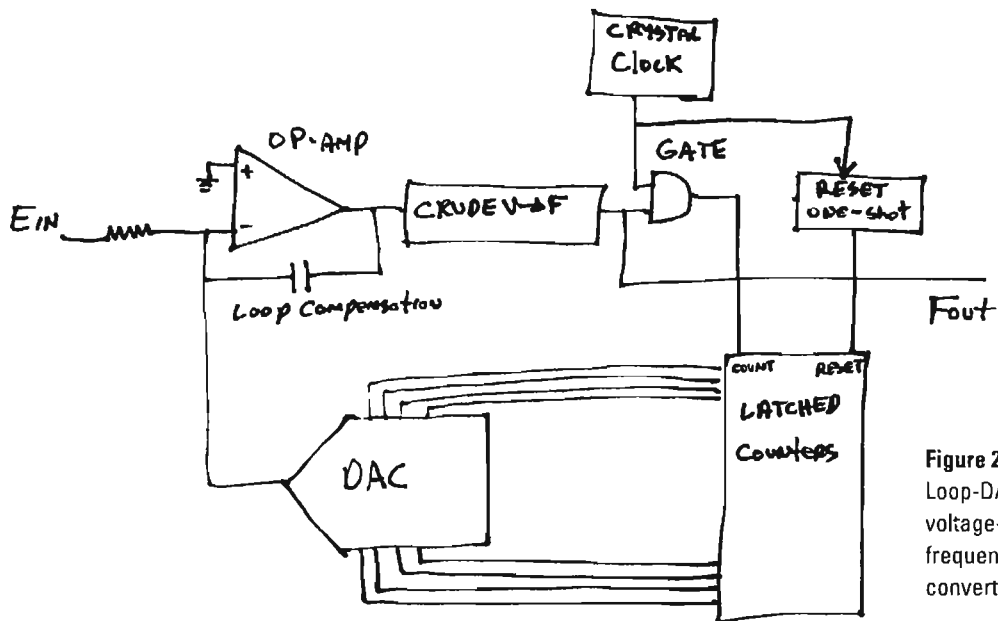 CRYSTAL
Clock
OP-AMP
GATE
+
-
EIN
CRUDE V→F
RESET
one-shot
Loop Compensation
Fout
COUNT RESET
LATCHED
Counters
DAC
Figure 2
Loop-DA
voltage-
frequen
convert